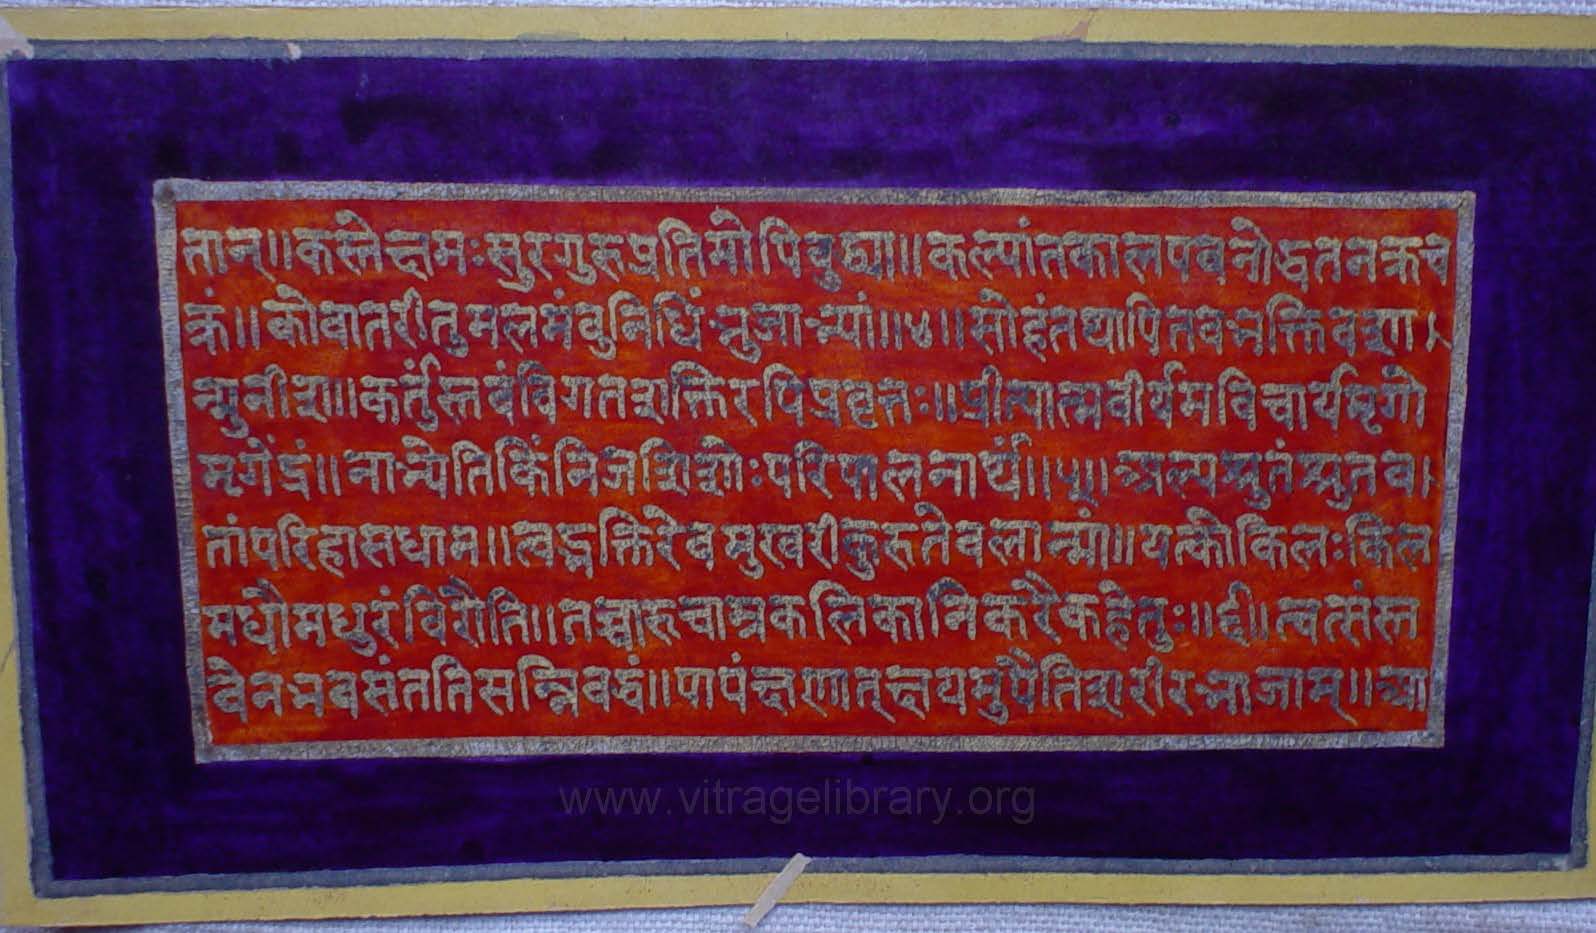 तान्॥कस्तेक्षमःसुरगुरुप्रतिमोपिबुद्ध्या॥कल्पांतकालपवनोद्धतनक्रच
क्रं॥कोवातरीतुमलमंबुनिधिंभुजाभ्यां॥४॥सोहंतथापितवभक्तिवशा
न्मुनीश॥कर्तुंस्तवंविगतशक्तिरपिप्रवृत्तः॥प्रीत्यात्मवीर्यमविचार्यमृगो
मृगेंद्रं॥नाभ्येतिकिंनिजशिशोःपरिपालनार्थं॥५॥अल्पश्रुतंश्रुतव
तांपरिहासधाम॥त्वद्भक्तिरेवमुखरीकुरुतेबलान्मां॥यत्कोकिलःकिल
मधौमधुरंविरौति॥तच्चारुचाम्रकलिकानिकरैकहेतुः॥६॥त्वत्संस्त
वेनभवसंततिसन्निबद्धं॥पापंक्षणात्क्षयमुपैतिशरीरभाजाम्॥आ
www.vitragelibrary.org